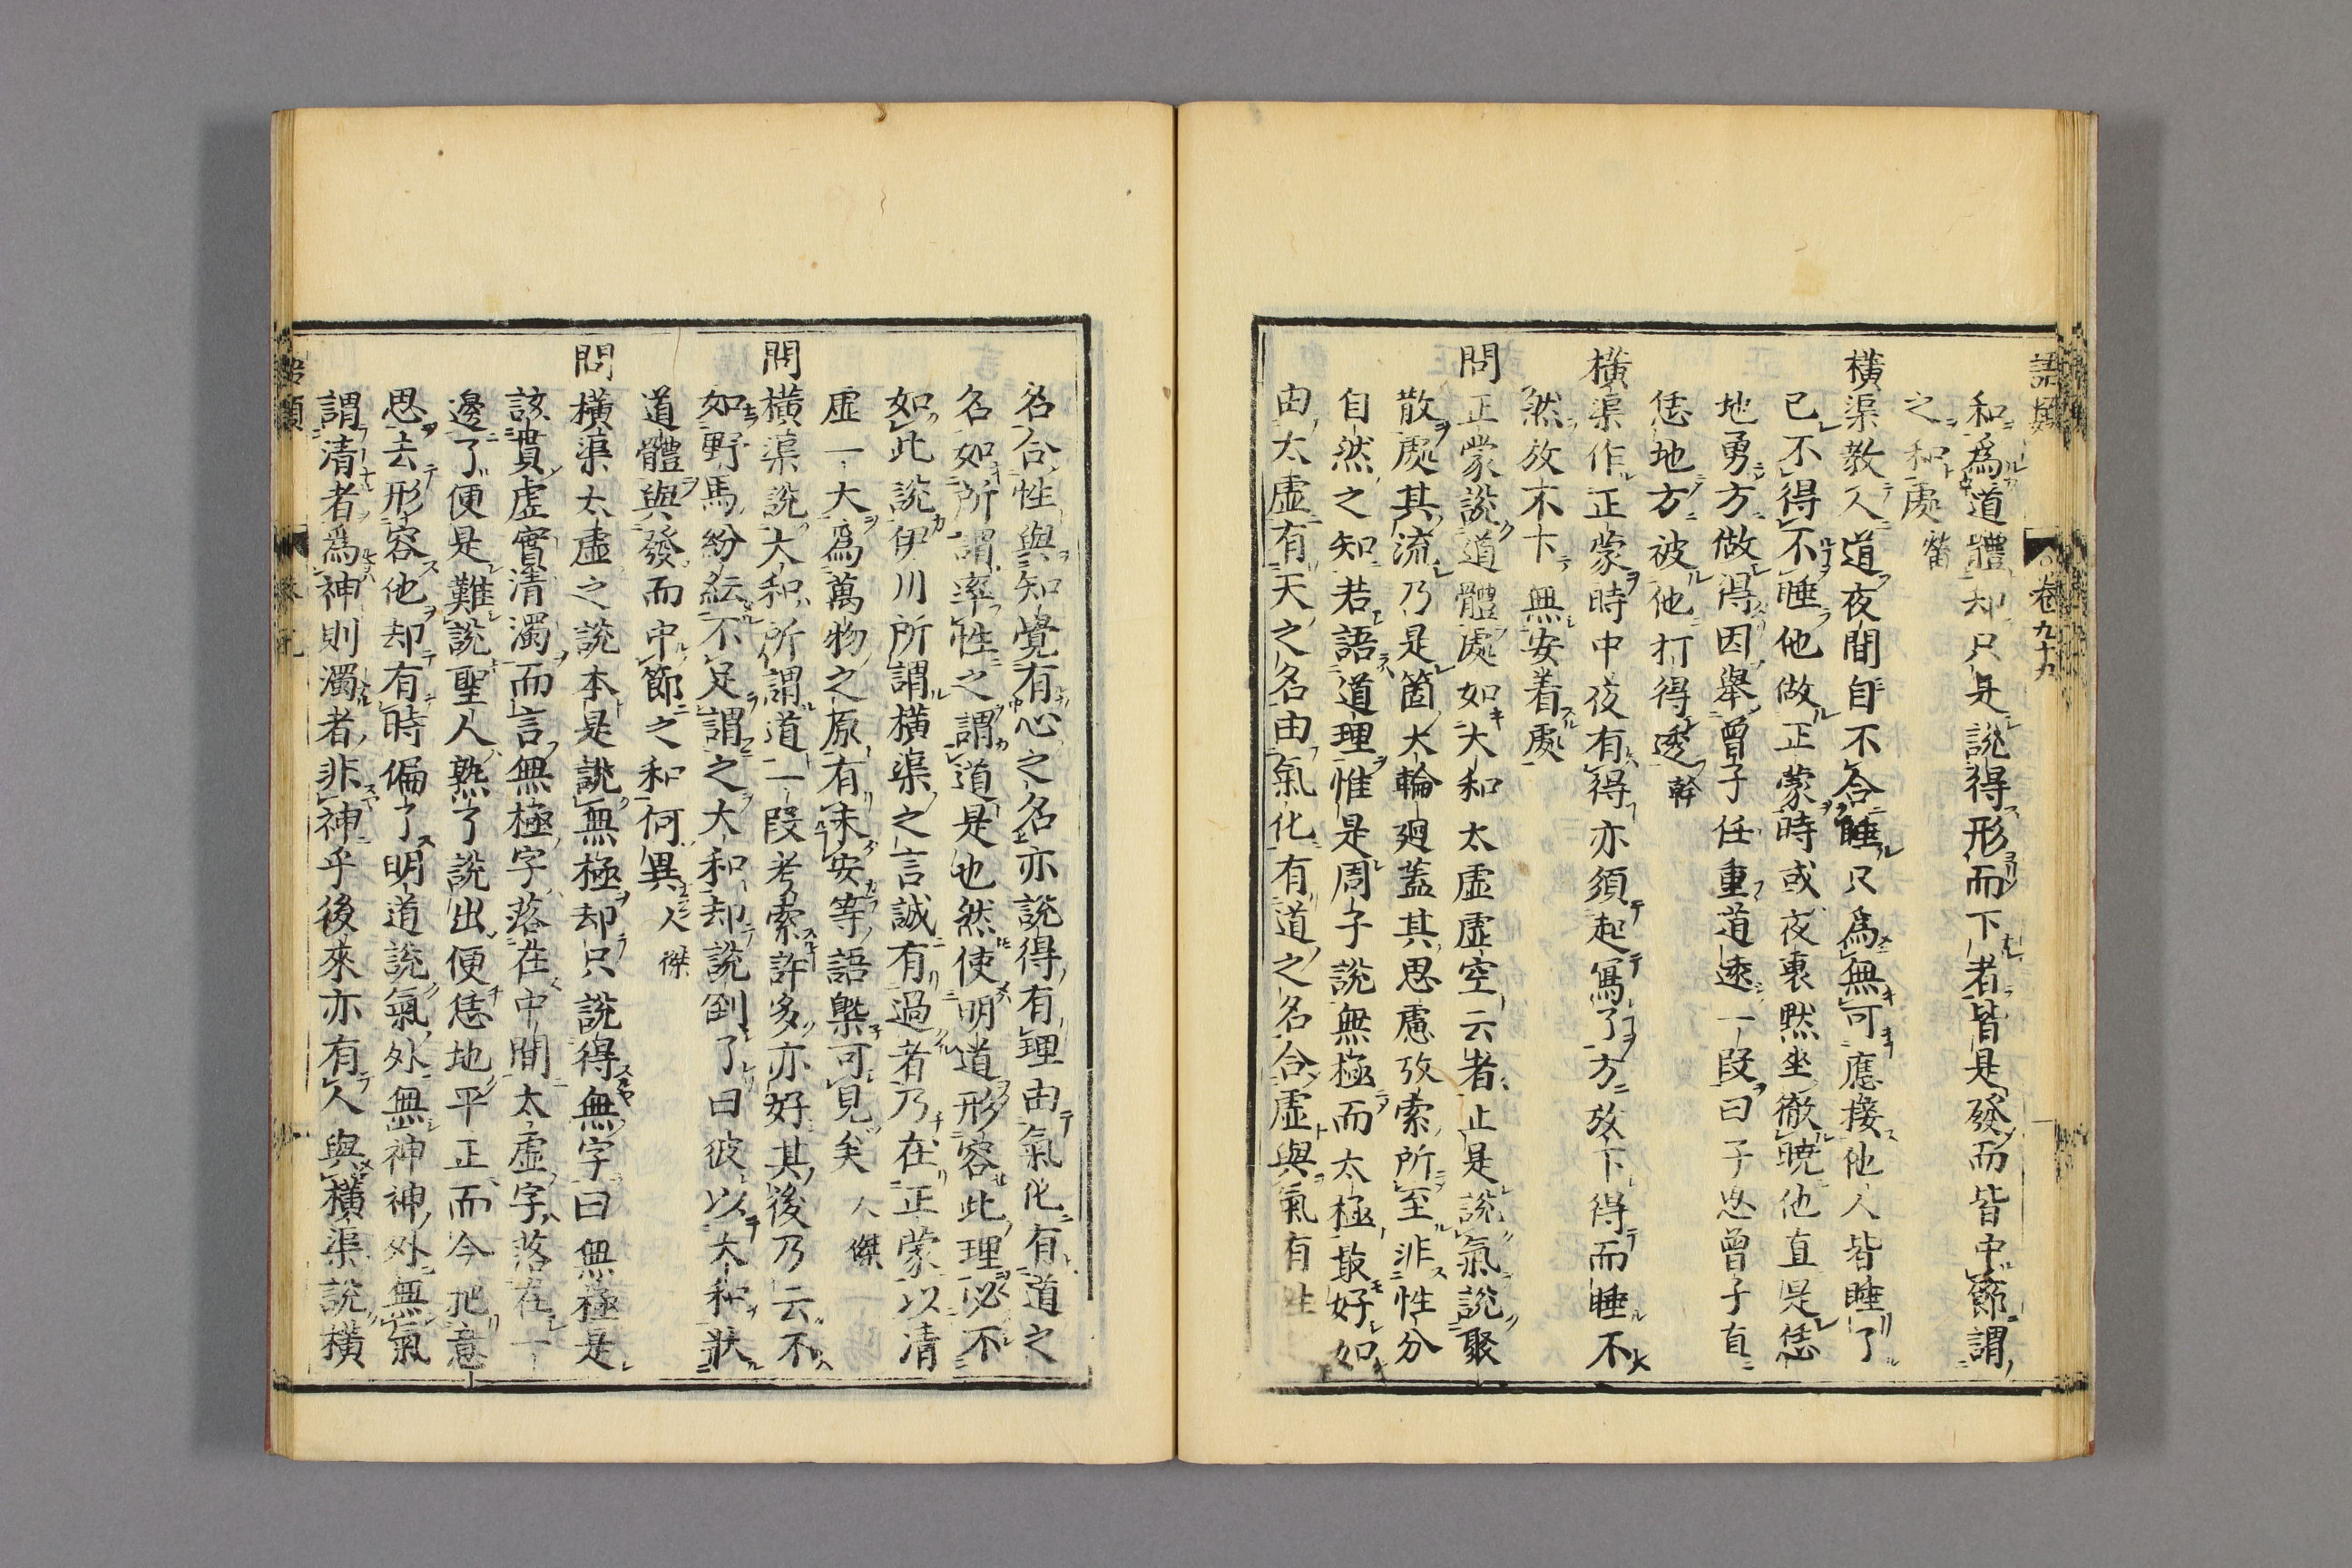 語類 卷九十九
和爲道體却只是說得形而下者皆是發而皆中節謂
之和處 㽦
橫渠教人道夜間自不合睡只爲無可應接他人皆睡了
已不得不睡他做正蒙時或夜裏默坐徹曉他直是恁
地勇方做得因舉曾子任重道遠一段曰子思曾子直
恁地方被他打得透 榦
橫渠作正蒙時中夜有得亦須起寫了方放下得而睡不
然放不下無安着處
問正蒙說道體處如大和太虛虛空云者止是說氣說聚
散處其流乃是箇大輪廻蓋其思慮攷索所至非性分
自然之知若語道理惟是周子說無極而太極最好如
由太虛有天之名由氣化有道之名合虛與氣有性
名合性與知覺有心之名亦說得有理由氣化有道之
名如所謂率性之謂道是也然使明道形容此理必不
如此說伊川所謂橫渠之言誠有過者乃在正蒙以清
虛一大爲萬物之原有未安等語槩可見矣 人傑
問橫渠說大和所謂道一段考索許多亦好其後乃云不
如野馬紛紜不足謂之大和却說倒了曰彼以大和狀
道體與發而中節之和何異 人傑
問橫渠太虛之說本是說無極却只說得無字曰無極是
該貫虛實清濁而言無極字落在中間太虛字落在一
邊了便是難說聖人熟了說出便恁地平正而今把意
思去形容他却有時偏了明道說氣外無神神外無氣
謂清者爲神則濁者非神乎後來亦有人與橫渠說橫